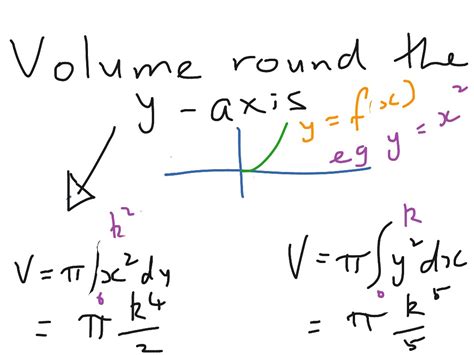 Volume round the
y - axis
y = f(x)
eg y = x²
V = π∫₀^{k²} x² dy
= π k⁴/2
V = π∫₀^{k} y² dx
= π k⁵/5